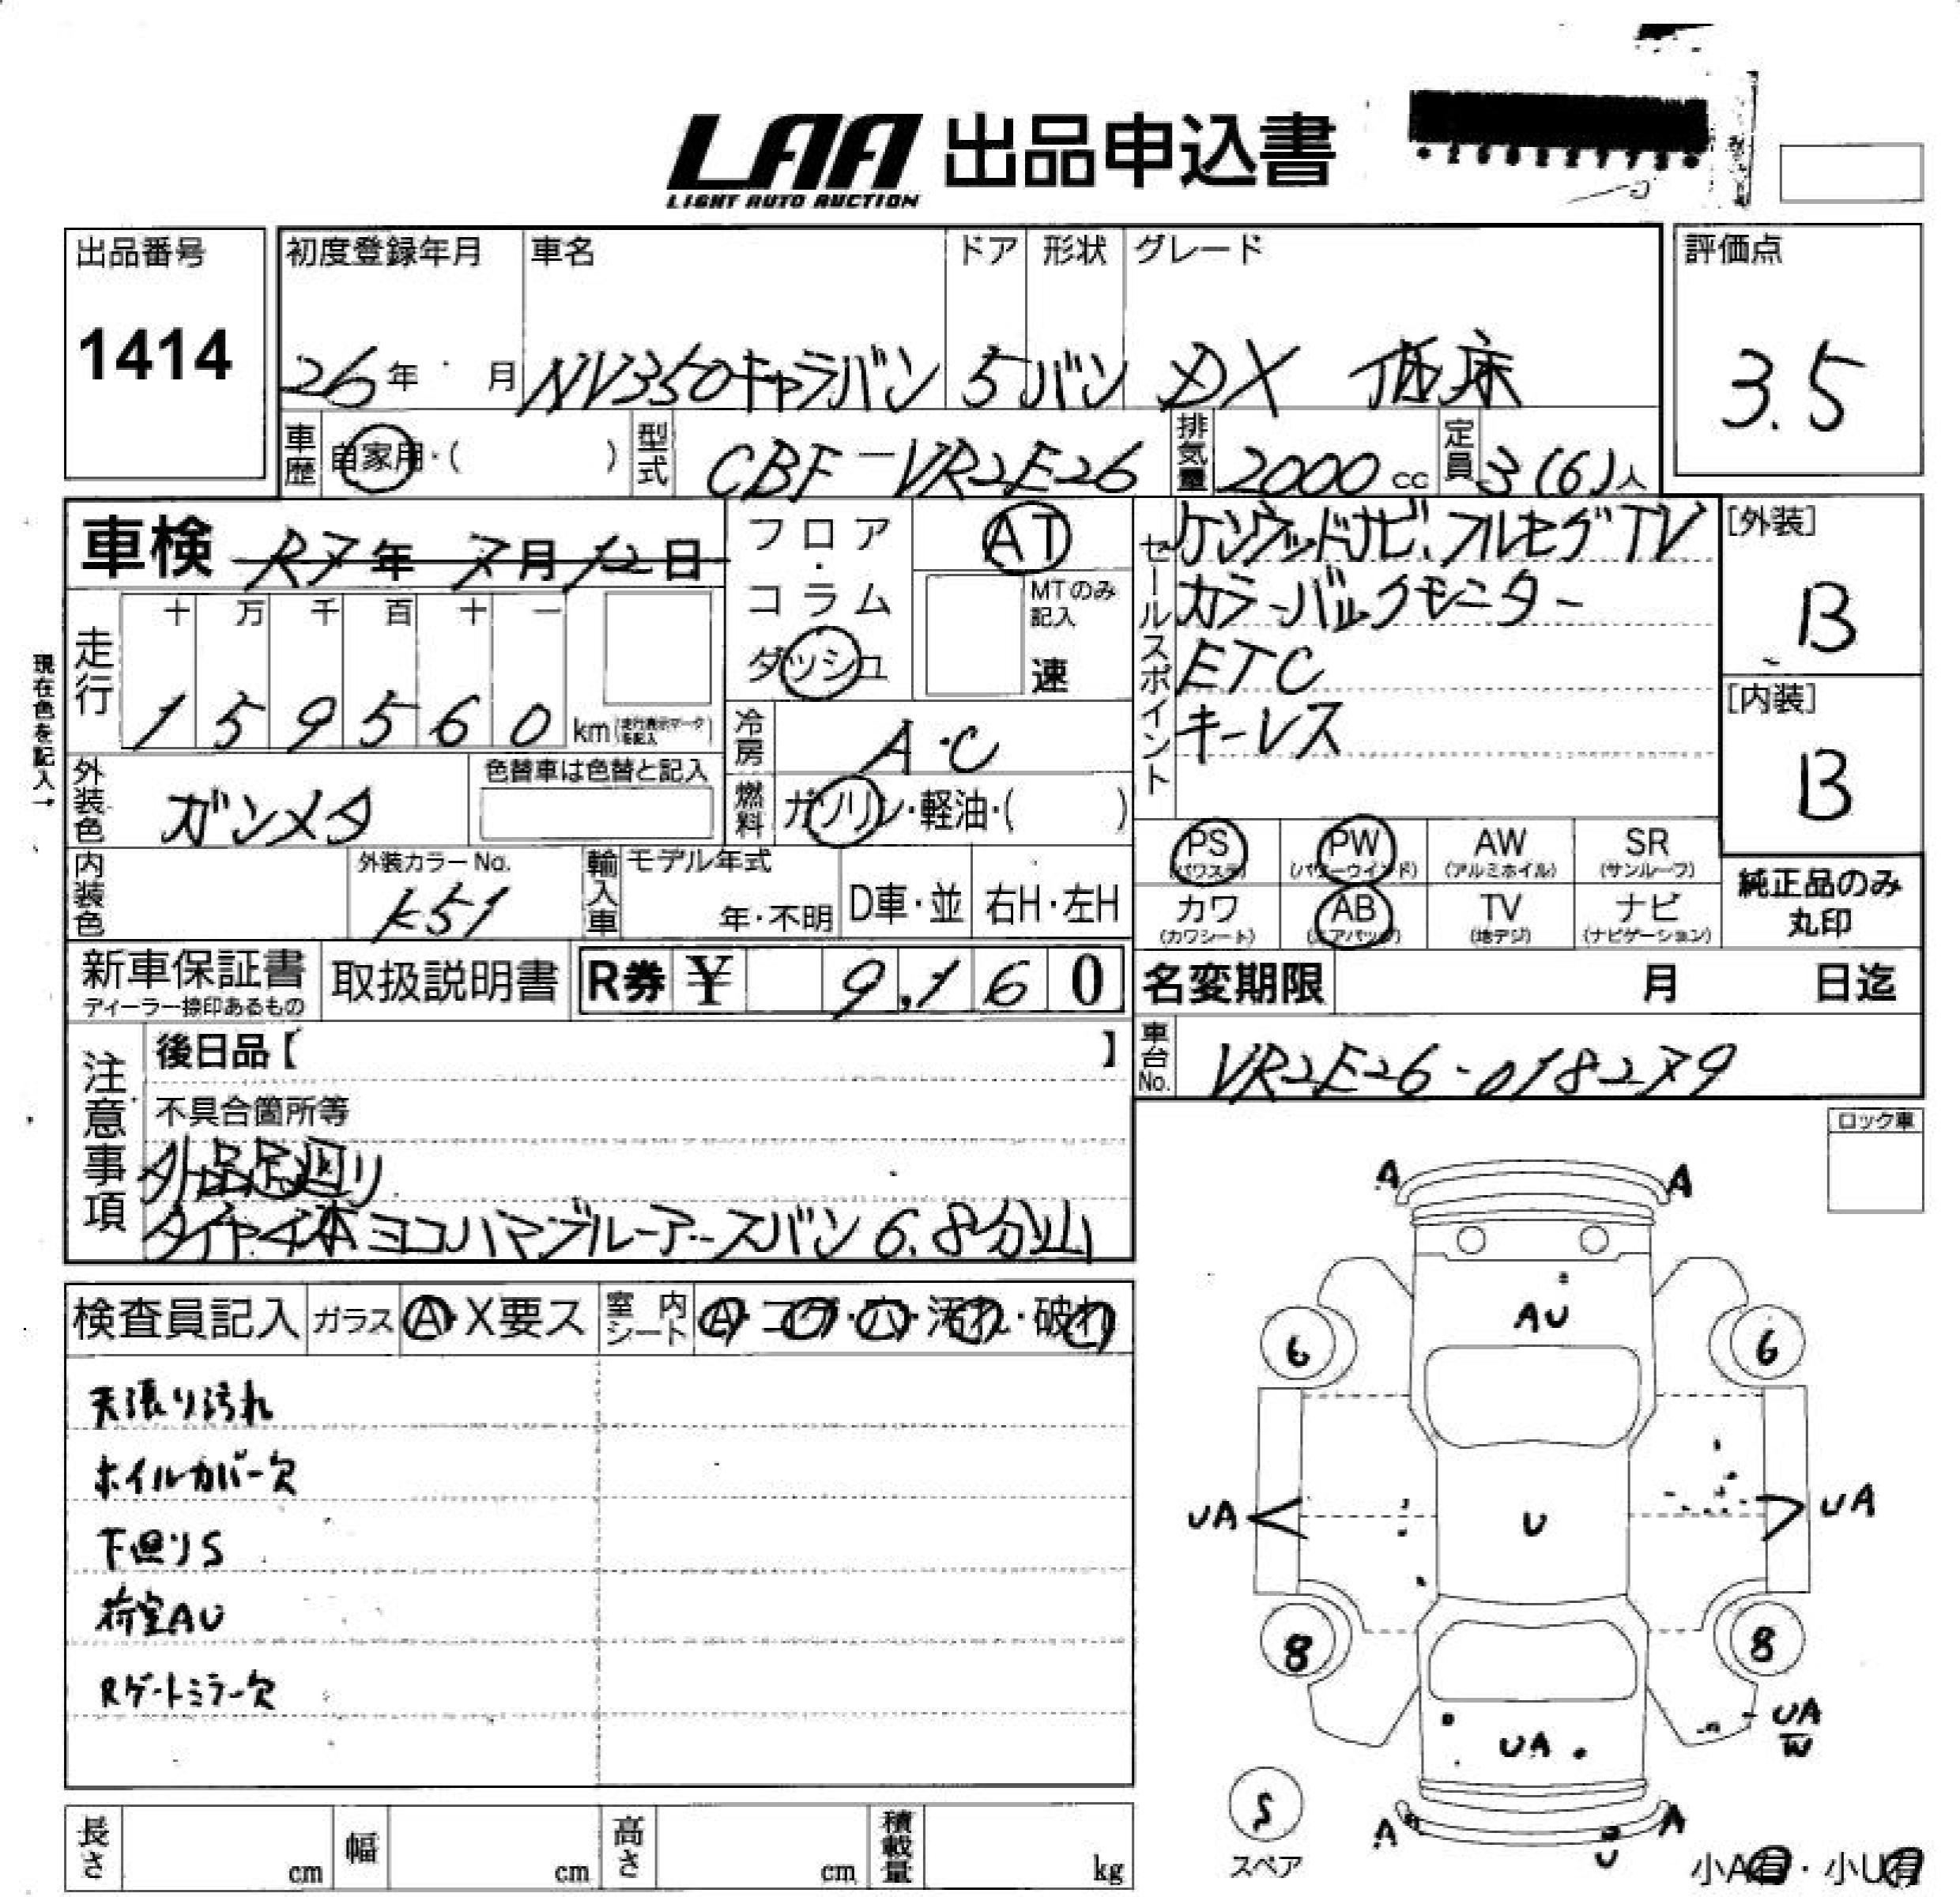 LAA 出品申込書
LIGHT AUTO AUCTION
出品番号
1414
初度登録年月 車名 ドア 形状 グレード
26年 月 NV350キャラバン 5 バン DX 低床
評価点
3.5
車歴 自家用・( ) 型式 CBF-VR2E26 排気量 2000cc 定員 3(6)人
車検 R7年7月12日
フロア・コラム ダッシュ
AT
MTのみ記入
速
セールスポイント
ケンウッドナビ、フルセグTV
カラーバックモニター
ETC
キーレス
[外装]
B
[内装]
B
現在色を記入→
走行
十 万 千 百 十 一
1 5 9 5 6 0 km (走行表示マークを記入)
冷房 A・C
外装色 ガンメタ
色替車は色替と記入
燃料 ガソリン・軽油・( )
PS (パワステ) PW (パワーウインド) AW (アルミホイル) SR (サンルーフ)
カワ (カワシート) AB (エアバッグ) TV (地デジ) ナビ (ナビゲーション)
純正品のみ丸印
内装色
外装カラーNo.
K51
輸入車 モデル年式 年・不明 D車・並 右H・左H
新車保証書
ディーラー捺印あるもの
取扱説明書
R券 ¥ 9,160
名変期限 月 日迄
車台No. VR2E26-018279
注意事項
後日品【 】
不具合箇所等
タイヤ4本ヨコハマブルーアースバン6.8分山
ロック車
検査員記入 ガラス A・X要ス 室内シート A・コゲ・穴・汚れ・破れ
天張り汚れ
ホイルカバー欠
下回りS
荷室AU
Rゲートミラー欠
A A
AU
6 6
UA U UA
8 8
UA
UA
W
S
スペア
A A
U
小A有・小U有
長さ cm 幅 cm 高さ cm 積載量 kg